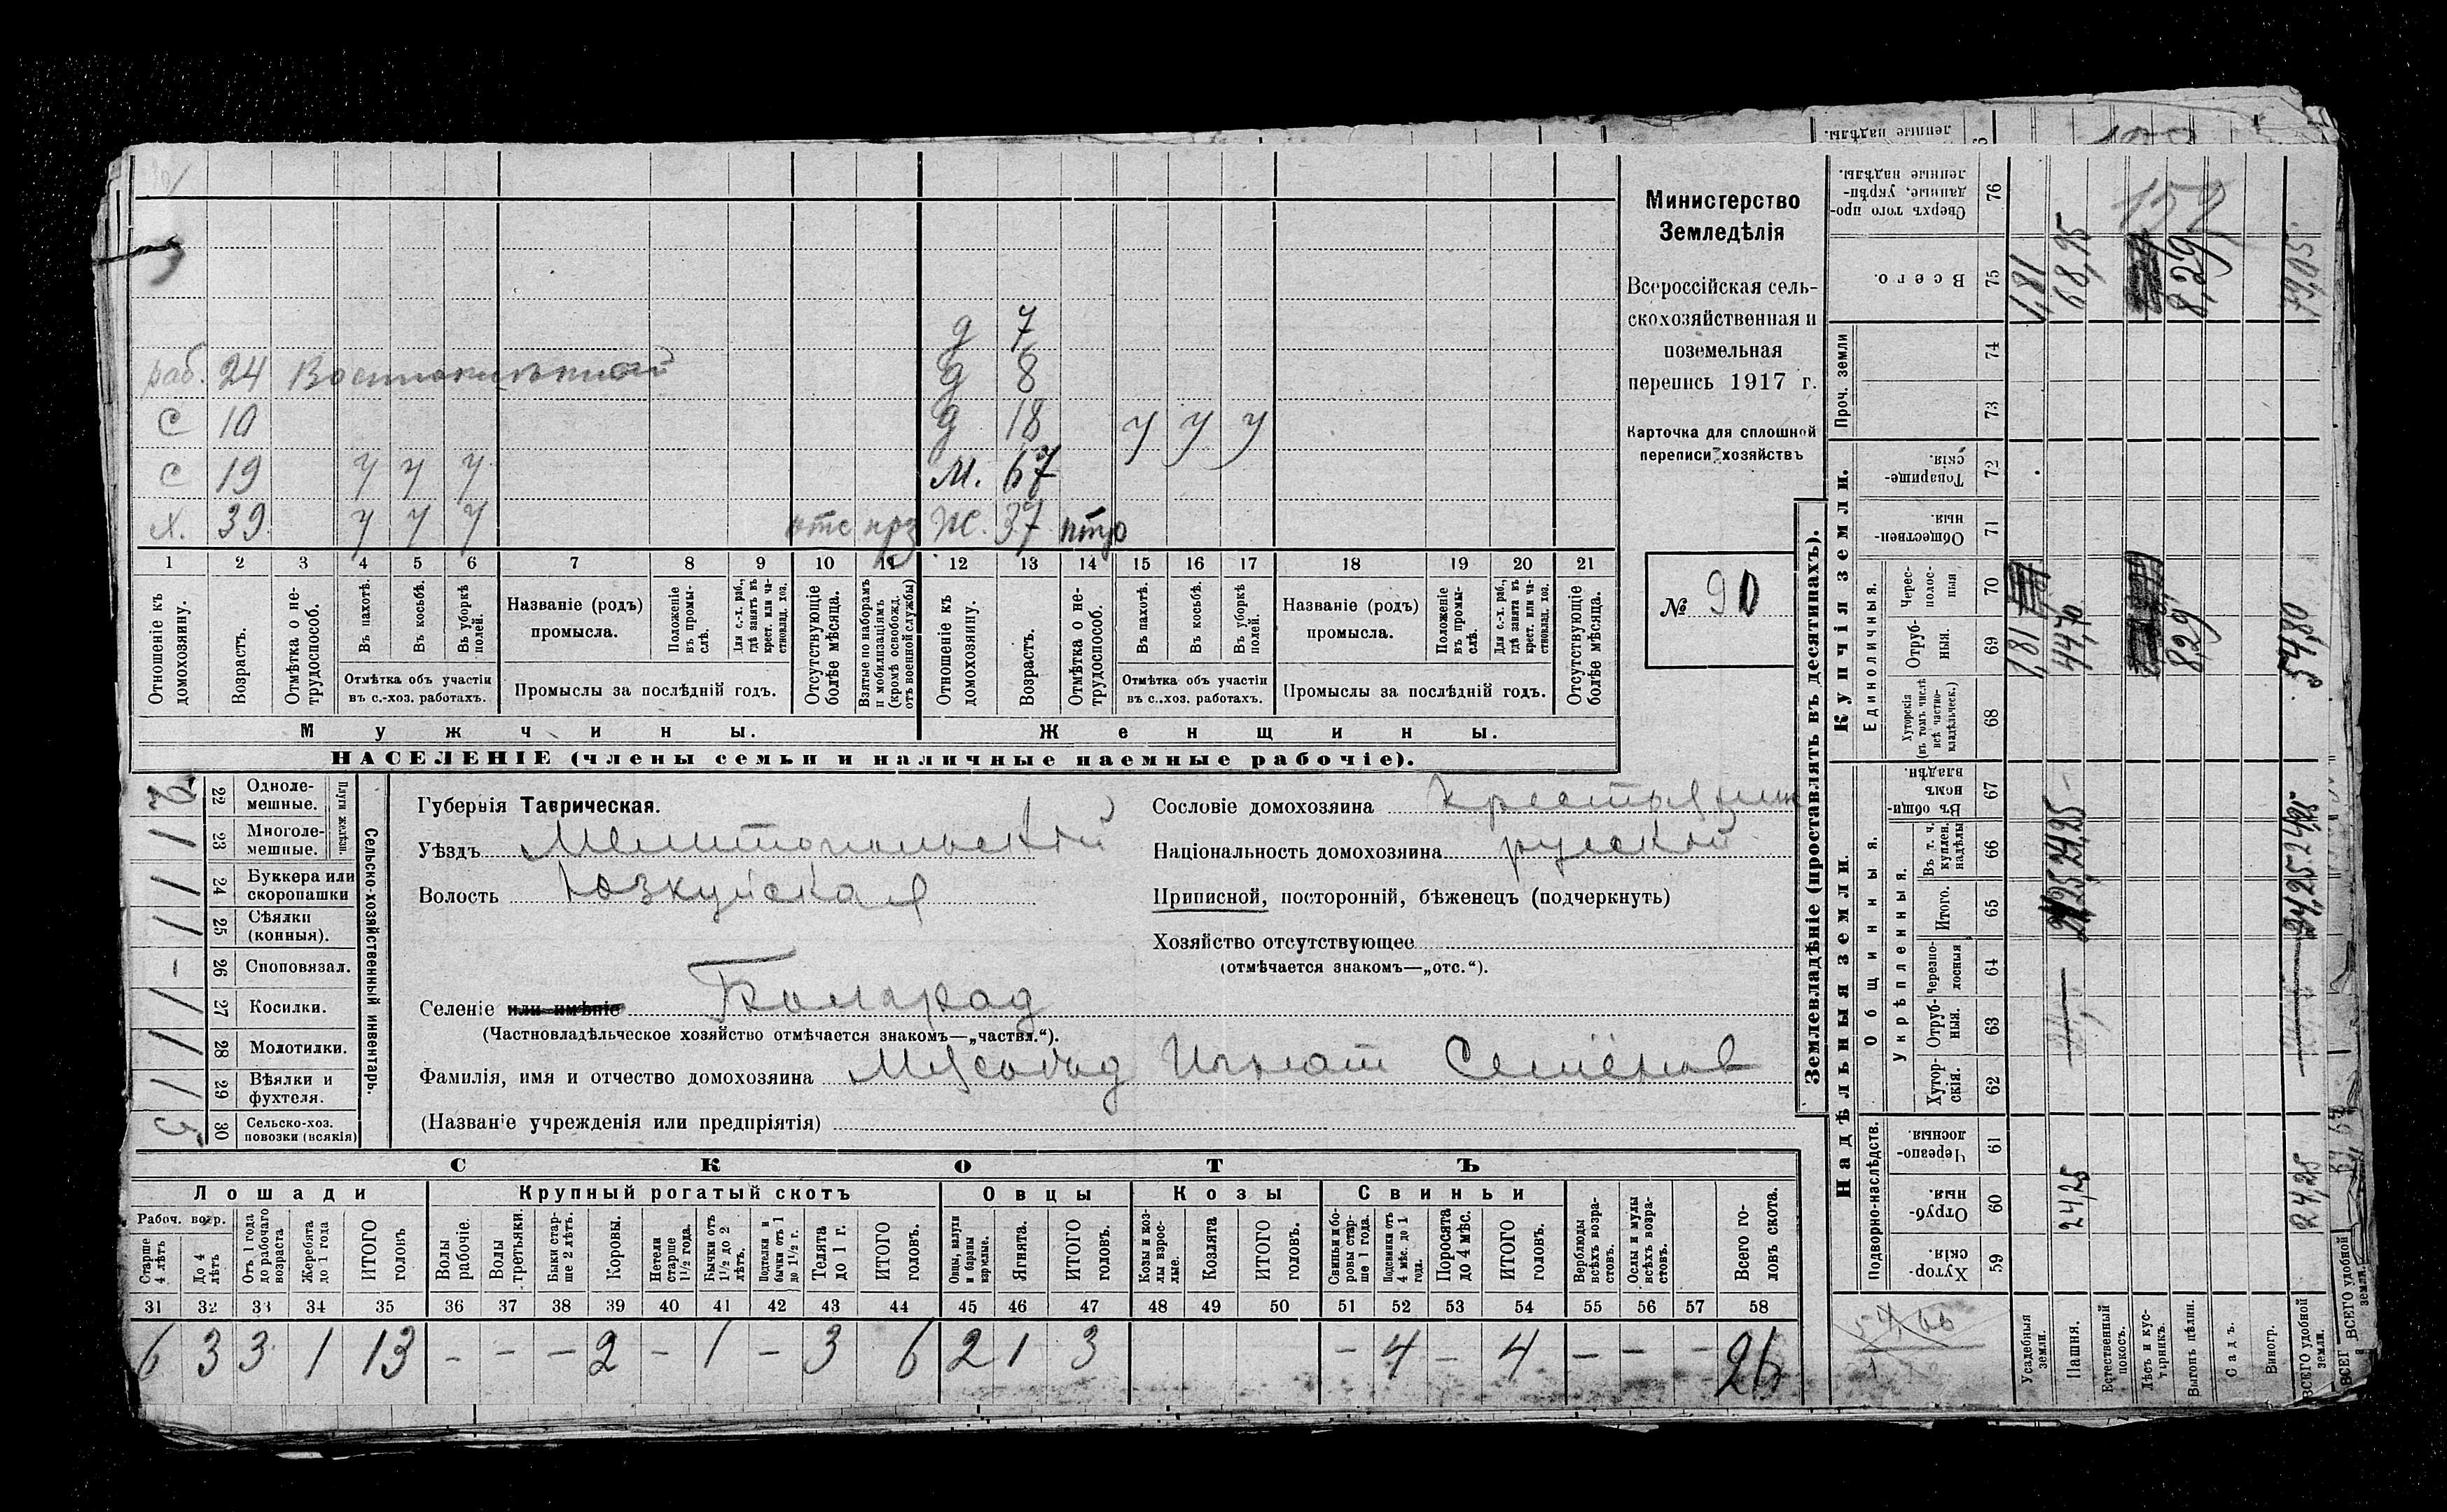 раб. 24
с 10
с 19 у у у
х. 39 у у у отс
д 7
д 8
д 18 у у у
м. 67
ж. 37
1 2 3 4 5 6 7 8 9 10 11 12 13 14 15 16 17 18 19 20 21
Отношеніе къ домохозяину.
Возрастъ.
Отмѣтка о не-трудоспособ.
Въ пахотѣ.
Въ косьбѣ.
Въ уборкѣ полей.
Отмѣтка объ участіи
въ с.-хоз. работахъ.
Названіе (родъ)
промысла.
Положеніе въ промы-слѣ.
Для с.-х. раб., гдѣ занятъ въ крест. или ча-стновлад. хоз.
Промыслы за послѣдній годъ.
Отсутствующіе болѣе мѣсяца.
Взятые по наборамъ и мобилизаціямъ (кромѣ освобожд. отъ военной службы)
Отношеніе къ домохозяину.
Возрастъ.
Отмѣтка о не-трудоспособ.
Въ пахотѣ.
Въ косьбѣ.
Въ уборкѣ полей.
Отмѣтка объ участіи
въ с.-хоз. работахъ.
Названіе (родъ)
промысла.
Положеніе въ промы-слѣ.
Для с.-х. раб., гдѣ занята въ крест. или ча-стновлад. хоз.
Промыслы за послѣдній годъ.
Отсутствующіе болѣе мѣсяца.
Мужчины.
Женщины.
НАСЕЛЕНІЕ (члены семьи и наличные наемные рабочіе).
Министерство
Земледѣлія
Всероссійская сель-
скохозяйственная и
поземельная
перепись 1917 г.
Карточка для сплошной
переписи хозяйствъ
№ 90
2 22 Одноле-мешные.
1 23 Многоле-мешные.
Плуги желѣзн.
1 24 Буккера или скоропашки
1 25 Сѣялки (конныя).
- 26 Сноповязал.
1 27 Косилки.
1 28 Молотилки.
1 29 Вѣялки и фухтеля.
3 30 Сельско-хоз. повозки (всякія)
Сельско-хозяйственный инвентарь.
Губернія Таврическая.
Уѣздъ Мелитопольскій
Волость Юзкуйская
Селеніе или имѣніе Болград
(Частновладѣльческое хозяйство отмѣчается знакомъ—„частвл.“).
Фамилія, имя и отчество домохозяина Мясоѣд Игнат Семёнов
(Названіе учрежденія или предпріятія)
Сословіе домохозяина крестьянин
Національность домохозяина русскій
Приписной, посторонній, бѣженецъ (подчеркнуть)
Хозяйство отсутствующее
(отмѣчается знакомъ—„отс.“).
СКОТЪ
Лошади
Крупный рогатый скотъ
Овцы
Козы
Свиньи
Рабоч. возр.
Старше 4 лѣтъ
До 4 лѣтъ
Отъ 1 года до рабочаго возраста
Жеребята до 1 года
ИТОГО головъ
Волы рабочіе.
Волы третьяки.
Быки стар-ше 2 лѣтъ.
Коровы.
Нетели старше 1½ года.
Бычки отъ 1½ до 2 лѣтъ.
Подтелки и бычки отъ 1 до 1½ г.
Телята до 1 г.
ИТОГО головъ.
Овцы, валухи и бараны взрослые.
Ягнята.
ИТОГО головъ.
Козы и коз-лы взрос-лые.
Козлята
ИТОГО головъ.
Свиньи и бо-ровы стар-ше 1 года.
Подсвинки отъ 4 мѣс. до 1 года.
Поросята до 4 мѣс.
ИТОГО головъ.
Верблюды всѣхъ возра-стовъ.
Ослы и мулы всѣхъ возра-стовъ.
Всего го-ловъ скота.
31 32 33 34 35 36 37 38 39 40 41 42 43 44 45 46 47 48 49 50 51 52 53 54 55 56 57 58
6 3 3 1 13 - - - 2 - 1 - 3 6 2 1 3 - 4 - 4 - - - 26
Землевладѣніе (проставлять въ десятинахъ).
Надѣльныя земли.
Купчія земли.
Проч. земли
Подворно-наслѣдств.
Общинныя.
Укрѣпленныя.
Единоличныя.
Сверхъ того про-данные, укрѣп-ленные надѣлы. 76
Всего. 75
74
73
Товарище-скія. 72
Обществен-ныя. 71
Черес-полос-ныя 70
Отруб-ныя. 69
Хуторскія (въ томъ числѣ всѣ частно-владѣльческ.) 68
Въ общин-номъ владѣн. 67
Въ т. ч. куплен. надѣлы 66
Итого. 65
Черезпо-лосныя 64
Отруб-ныя. 63
Хутор-скія. 62
Черезпо-лосныя. 61
Отруб-ныя. 60
Хутор-скія. 59
Усадебныя земли. 1,81 1,81
Пашня. 24,25 24,25 24,25 44,70 68,95
Естественный покосъ.
Лѣсъ и кус-тарникъ.
Выгонъ цѣлин. 8,29 8,29
Садъ.
Виногр.
ВСЕГО удобной земли. 24,25 24,25 24,25 54,80 79,05
ВСЕГО удобной земли.